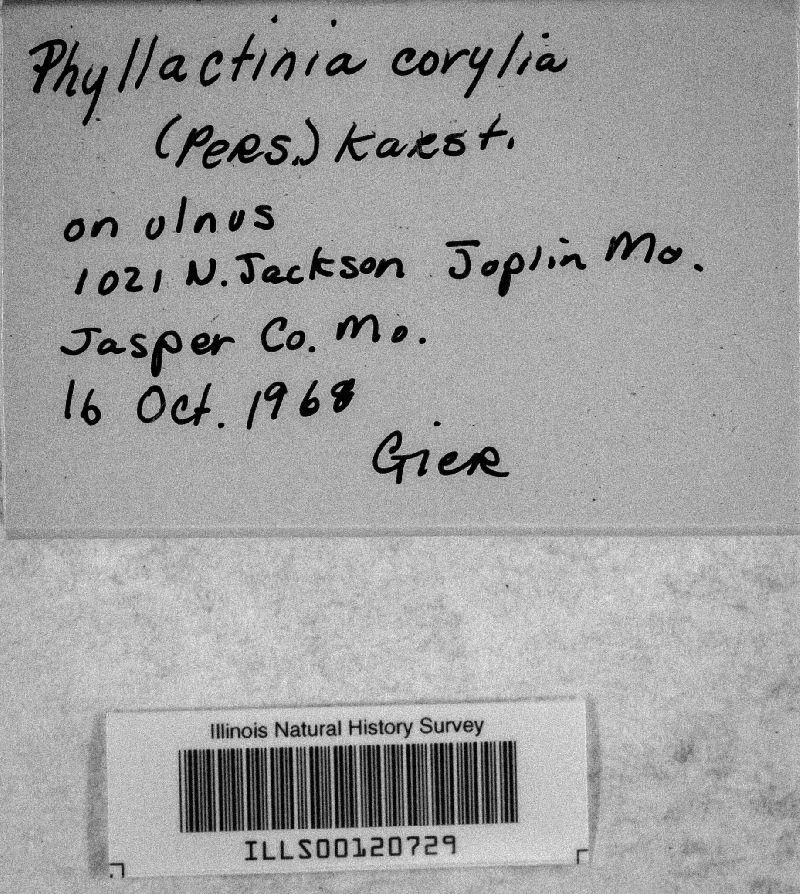 Phyllactinia corylia
(Pers.) Karst.
on ulnus
1021 N. Jackson Joplin Mo.
Jasper Co. Mo.
16 Oct. 1968
Gier
Illinois Natural History Survey
ILLS00120729